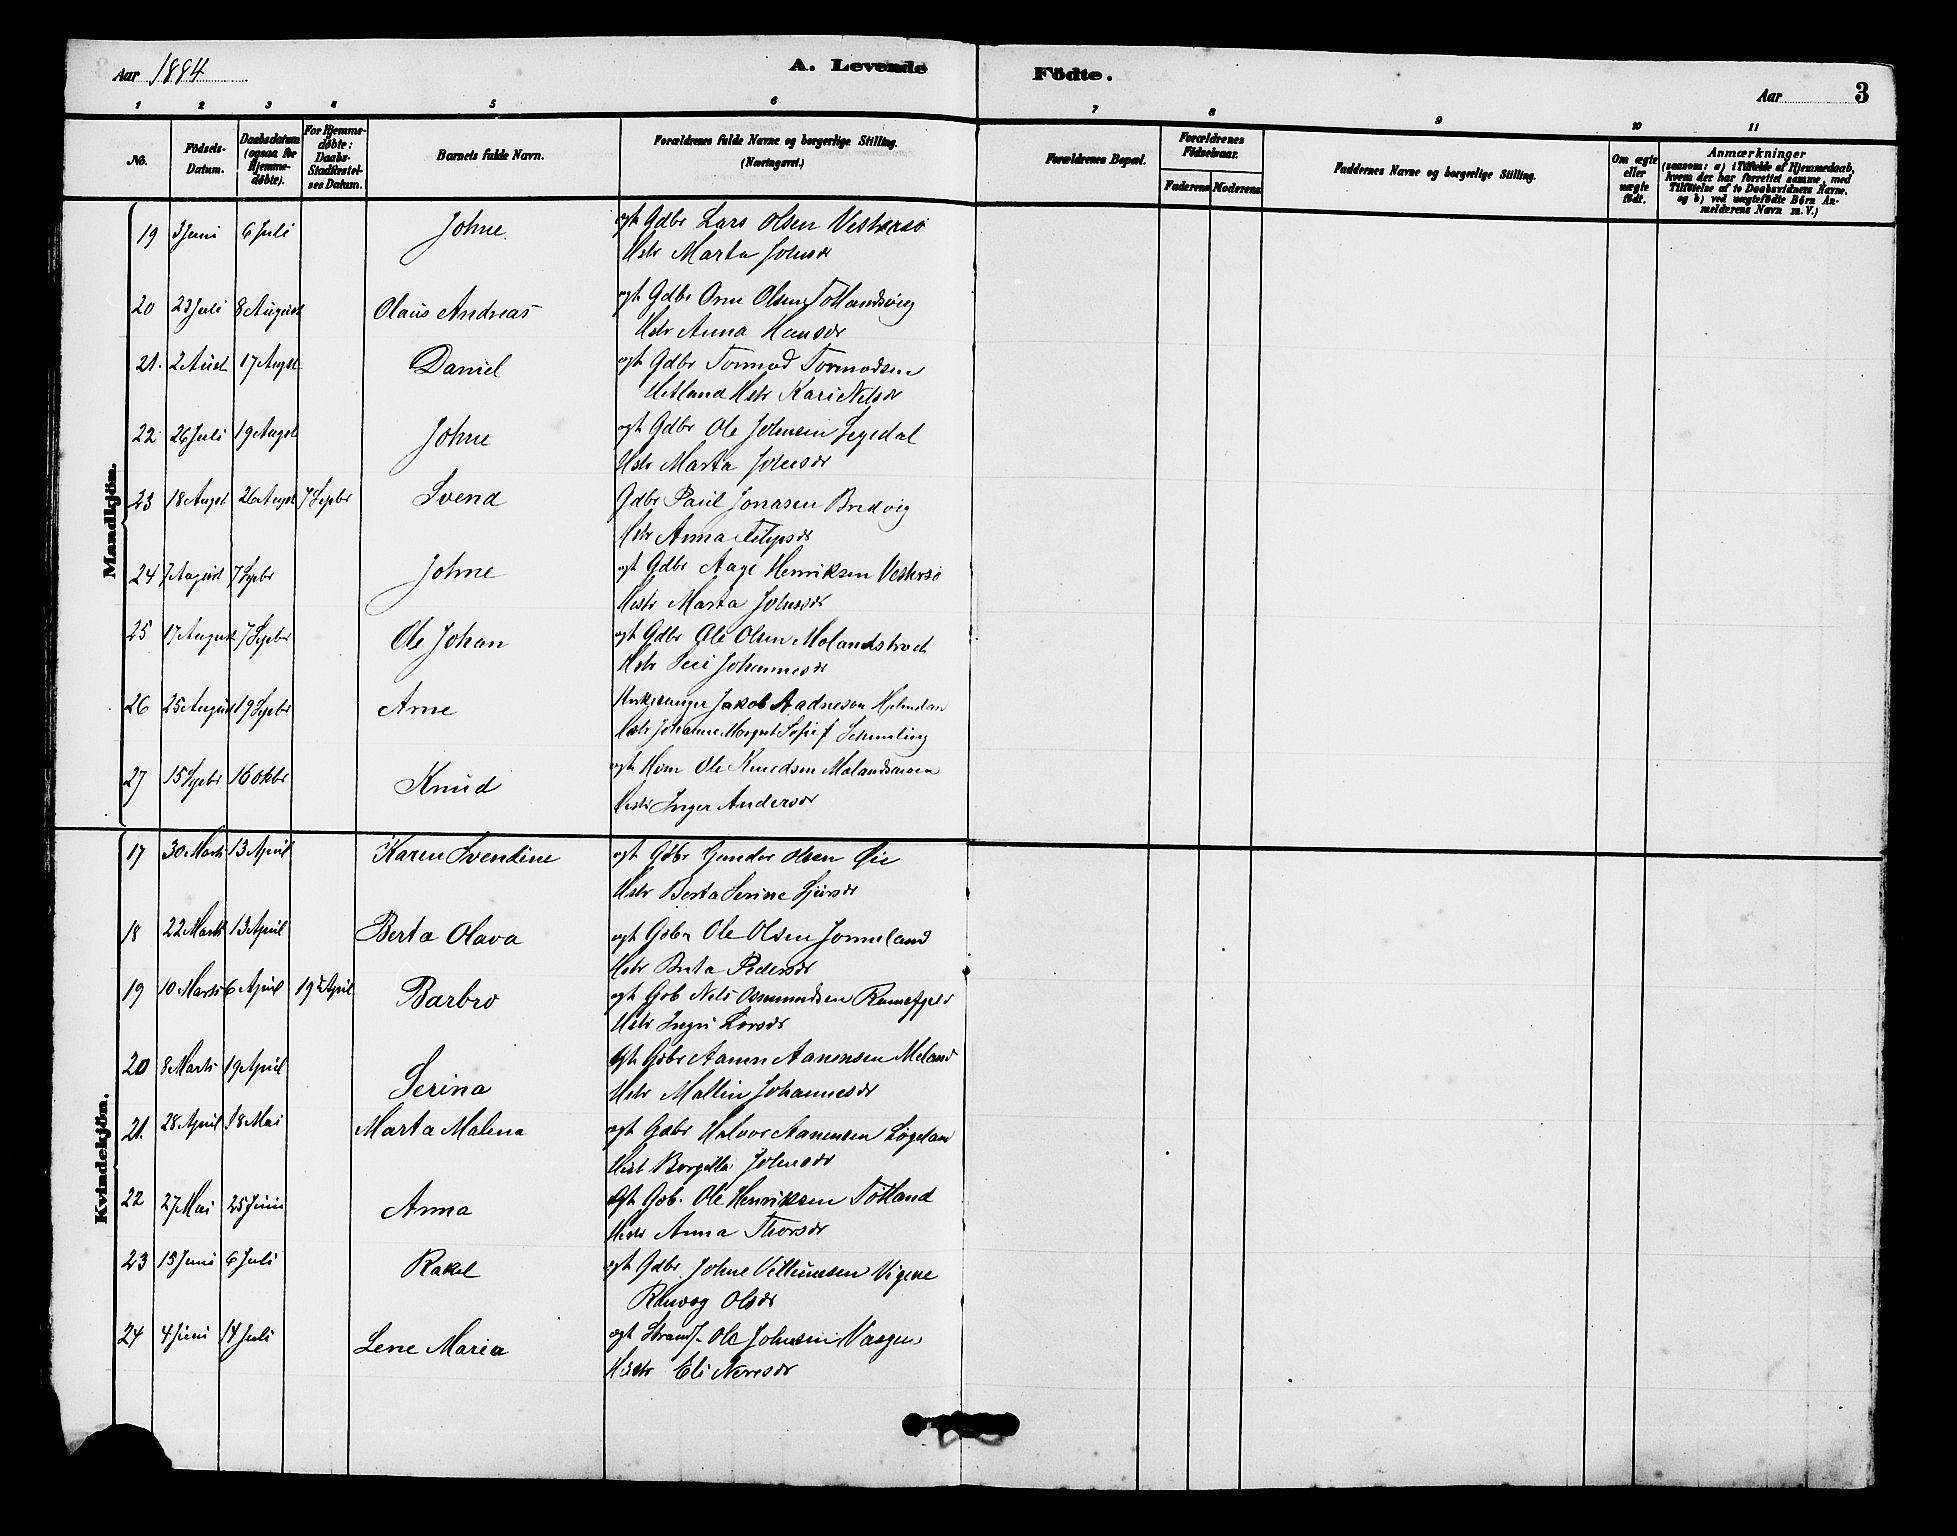 Aar 1884
A. Levende Födte.
Aar 3
1 2 3 4 5 6 7 8 9 10 11
No.
Födsels-Datum.
Daabsdatum (ogsaa for Hjemmedöbte).
For Hjemmedöbte: Daabs-Stadfæstelses Datum.
Barnets fulde Navn.
Forældrenes fulde Navne og borgerlige Stilling. (Næringsvei.)
Forældrenes Bopæl.
Forældrenes Födselsaar.
Faderens Moderens
Faddernes Navne og borgerlige Stilling.
Om ægte eller uægte födt.
Anmærkninger (saasom: a) i Tilfælde af Hjemmedaab, hvem der har forrettet samme, med Tilföielse af to Daabsvidners Navne, og b) ved uægtefödte Börn Anmelderens Navn m. V.)
Mandkjön.
19 3 Juni 6 Juli Johne ægt Gdbr Lars Olsen Vestersø
Hstr Marta Johnsdr
20 23 Juli 8 August Olaus Andreas ægt Gdbr Orm Olsen Totlandsvig
Hstr Anna Hansdr
21. 2 Aust 17 Augst Daniel ægt Gdbr Tormod Tormodsen
Hetland Hstr Kari Nelsdr
22 26 Juli 19 Augst Johne ægt Gdbr Ole Johnsen
Hstr Marta Johnsdr
23 18 Augst 26 Augst 7 Septbr Svend Gdbr Paul Jonasen Bredvig
Hstr Anna
24 7 August 7 Septbr Johne ægt Gdbr Aage Henriksen Vestersø
Hustr Marta Johnsdr
25 17 August 7 Septbr Ole Johan ægt Gdbr Ole Olsen
Hstr Johannesdr
26 25 August 19 Septbr Arne Jakob Aadneson
Hstr Johanne Margret Sofie
27 15 Septbr 16 Oktbr Knud ægt Ole Knudsen
Hustr Inger Andersdr
Kvindekjön.
17 30 Marts 13 April Karen Svendine ægt Gdbr Gunder Olsen Øie
Hstr Berta Serine
18 22 Marts 13 April Berta Olava ægt Gdbr Ole Olsen Jonneland
Hstr Brita Pedersdr
19 10 Marts 6 April 19 April Barbro ægt Gdb Nels Osmundsen
Hstr Ingri Larsdr
20 8 Marts 19 April Serina ægt Gdbr Aanen Aanensen Meland
Hstr Mallin Johannesdr
21. 28 April 18 Mai Marta Malena ægt Gdbr Halvor Aanensen
Hust Borgilla Johnsdr
22 27 Mai 25 Juni Anna ægt Gdb. Ole Henriksen Totland
Hustr Anna Thorsdr
23 15 Juni 6 Juli Rakel ægt Gdbr Johne Villumsen Vigene
Ranvog Olsdr
24 4 Juni 14 Juli Lene Maria ægt Ole Johnsen Vaagen
Hustr Eli